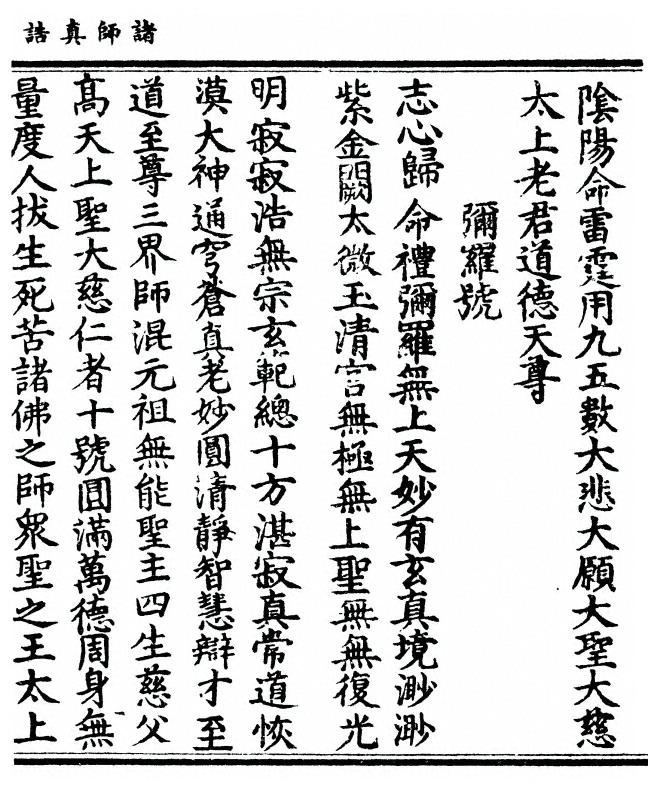 諸師真誥
陰陽命雷霆用九五數大悲大願大聖大慈
太上老君道德天尊
彌羅號
志心歸命禮彌羅無上天妙有玄真境渺渺
紫金闕太微玉清宮無極無上聖無無復光
明寂寂浩無宗玄範總十方湛寂真常道恢
漠大神通穹蒼真老妙圓清靜智慧辯才至
道至尊三界師混元祖無能聖主四生慈父
高天上聖大慈仁者十號圓滿萬德周身無
量度人拔生死苦諸佛之師眾聖之王太上